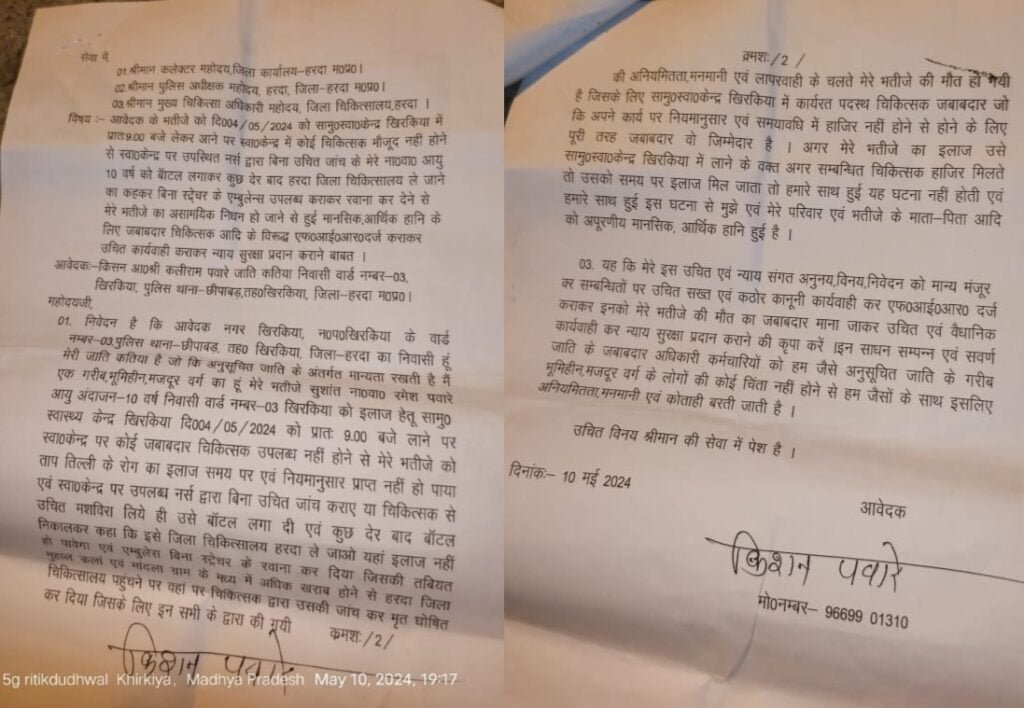 सेवा में,
01.श्रीमान कलेक्टर महोदय,जिला कार्यालय–हरदा म0प्र0।
02.श्रीमान पुलिस अधीक्षक महोदय, हरदा, जिला–हरदा म0प्र0।
03.श्रीमान मुख्य चिकित्सा अधिकारी महोदय, जिला चिकित्सालय,हरदा ।
विषय :– आवेदक के भतीजे को दि004/05/2024 को सामु0स्वा0केन्द्र खिरकिया में
प्रातः9.00 बजे लेकर आने पर स्वा0केन्द्र में कोई चिकित्सक मौजूद नहीं होने
से स्वा0केन्द्र पर उपस्थित नर्स द्वारा बिना उचित जांच के मेरे ना0वा0 आयु
10 वर्ष को बॉटल लगाकर कुछ देर बाद हरदा जिला चिकित्सालय ले जाने
का कहकर बिना स्ट्रेचर के एम्बुलेन्स उपलब्ध कराकर रवाना कर देने से
मेरे भतीजे का असामयिक निधन हो जाने से हुई मानसिक,आर्थिक हानि के
लिए जबाबदार चिकित्सक आदि के विरूद्ध एफ0आई0आर0दर्ज कराकर
उचित कार्यवाही कराकर न्याय सुरक्षा प्रदान कराने बाबत ।
आवेदकः–किसन आ0श्री कलीराम पवारे जाति कतिया निवासी वार्ड नम्बर–03,
खिरकिया, पुलिस थाना–छीपाबड़,तह0खिरकिया, जिला–हरदा म0प्र0।
महोदयजी,
01. निवेदन है कि आवेदक नगर खिरकिया, न0प0खिरकिया के वार्ड
नम्बर–03.पुलिस थाना–छीपाबड़, तह0 खिरकिया, जिला–हरदा का निवासी हूं
मेरी जाति कतिया है जो कि अनुसूचित जाति के अंतर्गत मान्यता रखती है मैं
एक गरीब,भूमिहीन,मजदूर वर्ग का हूं मेरे भतीजे सुशांत ना0वा0 रमेश पवारे
आयु अंदाजन–10 वर्ष निवासी वार्ड नम्बर–03 खिरकिया को इलाज हेतु सामु0
स्वास्थ्य केन्द्र खिरकिया दि004/05/2024 को प्रातः 9.00 बजे लाने पर
स्वा0केन्द्र पर कोई जबाबदार चिकित्सक उपलब्ध नहीं होने से मेरे भतीजे को
ताप तिल्ली के रोग का इलाज समय पर एवं नियमानुसार प्राप्त नहीं हो पाया
एवं स्वा0केन्द्र पर उपलब्ध नर्स द्वारा बिना उचित जांच कराए या चिकित्सक से
उचित मशविरा लिये ही उसे बॉटल लगा दी एवं कुछ देर बाद बॉटल
निकालकर कहा कि इसे जिला चिकित्सालय हरदा ले जाओ यहां इलाज नहीं
हो पावेगा एवं एम्बुलेस बिना स्ट्रेचर के रवाना कर दिया जिसकी तबियत
मुहाल कलां एवं मांदला ग्राम के मध्य में अधिक खराब होने से हरदा जिला
चिकित्सालय पहुंचने पर वहां पर चिकित्सक द्वारा उसकी जांच कर मृत घोषित
कर दिया जिसके लिए इन सभी के द्वारा की गयी क्रमशः/2/
किशन पवारे
5g ritikdudhwal Khirkiya, Madhya Pradesh May 10, 2024, 19:17
क्रमशः/2/
की अनियमितता,मनमानी एवं लापरवाही के चलते मेरे भतीजे की मौत हो गयी
है जिसके लिए सामु0स्वा0केन्द्र खिरकिया में कार्यरत पदस्थ चिकित्सक जबाबदार जो
कि अपने कार्य पर नियमानुसार एवं समयावधि में हाजिर नहीं होने से होने के लिए
पूरी तरह जबाबदार वो जिम्मेदार है । अगर मेरे भतीजे का इलाज उसे
सामु0स्वा0केन्द्र खिरकिया में लाने के वक्त अगर सम्बन्धित चिकित्सक हाजिर मिलते
तो उसको समय पर इलाज मिल जाता तो हमारे साथ हुई यह घटना नहीं होती एवं
हमारे साथ हुई इस घटना से मुझे एवं मेरे परिवार एवं भतीजे के माता–पिता आदि
को अपूरणीय मानसिक, आर्थिक हानि हुई है ।
03. यह कि मेरे इस उचित एवं न्याय संगत अनुनय,विनय,निवेदन को मान्य मंजूर
कर सम्बन्धितों पर उचित सख्त एवं कठोर कानूनी कार्यवाही कर एफ0आई0आर0 दर्ज
कराकर इनको मेरे भतीजे की मौत का जबाबदार माना जाकर उचित एवं वैधानिक
कार्यवाही कर न्याय सुरक्षा प्रदान कराने की कृपा करें ।इन साधन सम्पन्न एवं सवर्ण
जाति के जबाबदार अधिकारी कर्मचारियों को हम जैसे अनुसूचित जाति के गरीब
भूमिहीन,मजदूर वर्ग के लोगों की कोई चिंता नहीं होने से हम जैसों के साथ इसलिए
अनियमितता,मनमानी एवं कोताही बरती जाती है ।
उचित विनय श्रीमान की सेवा में पेश है ।
दिनांकः– 10 मई 2024
आवेदक
किशन पवारे
मो0नम्बर– 96699 01310